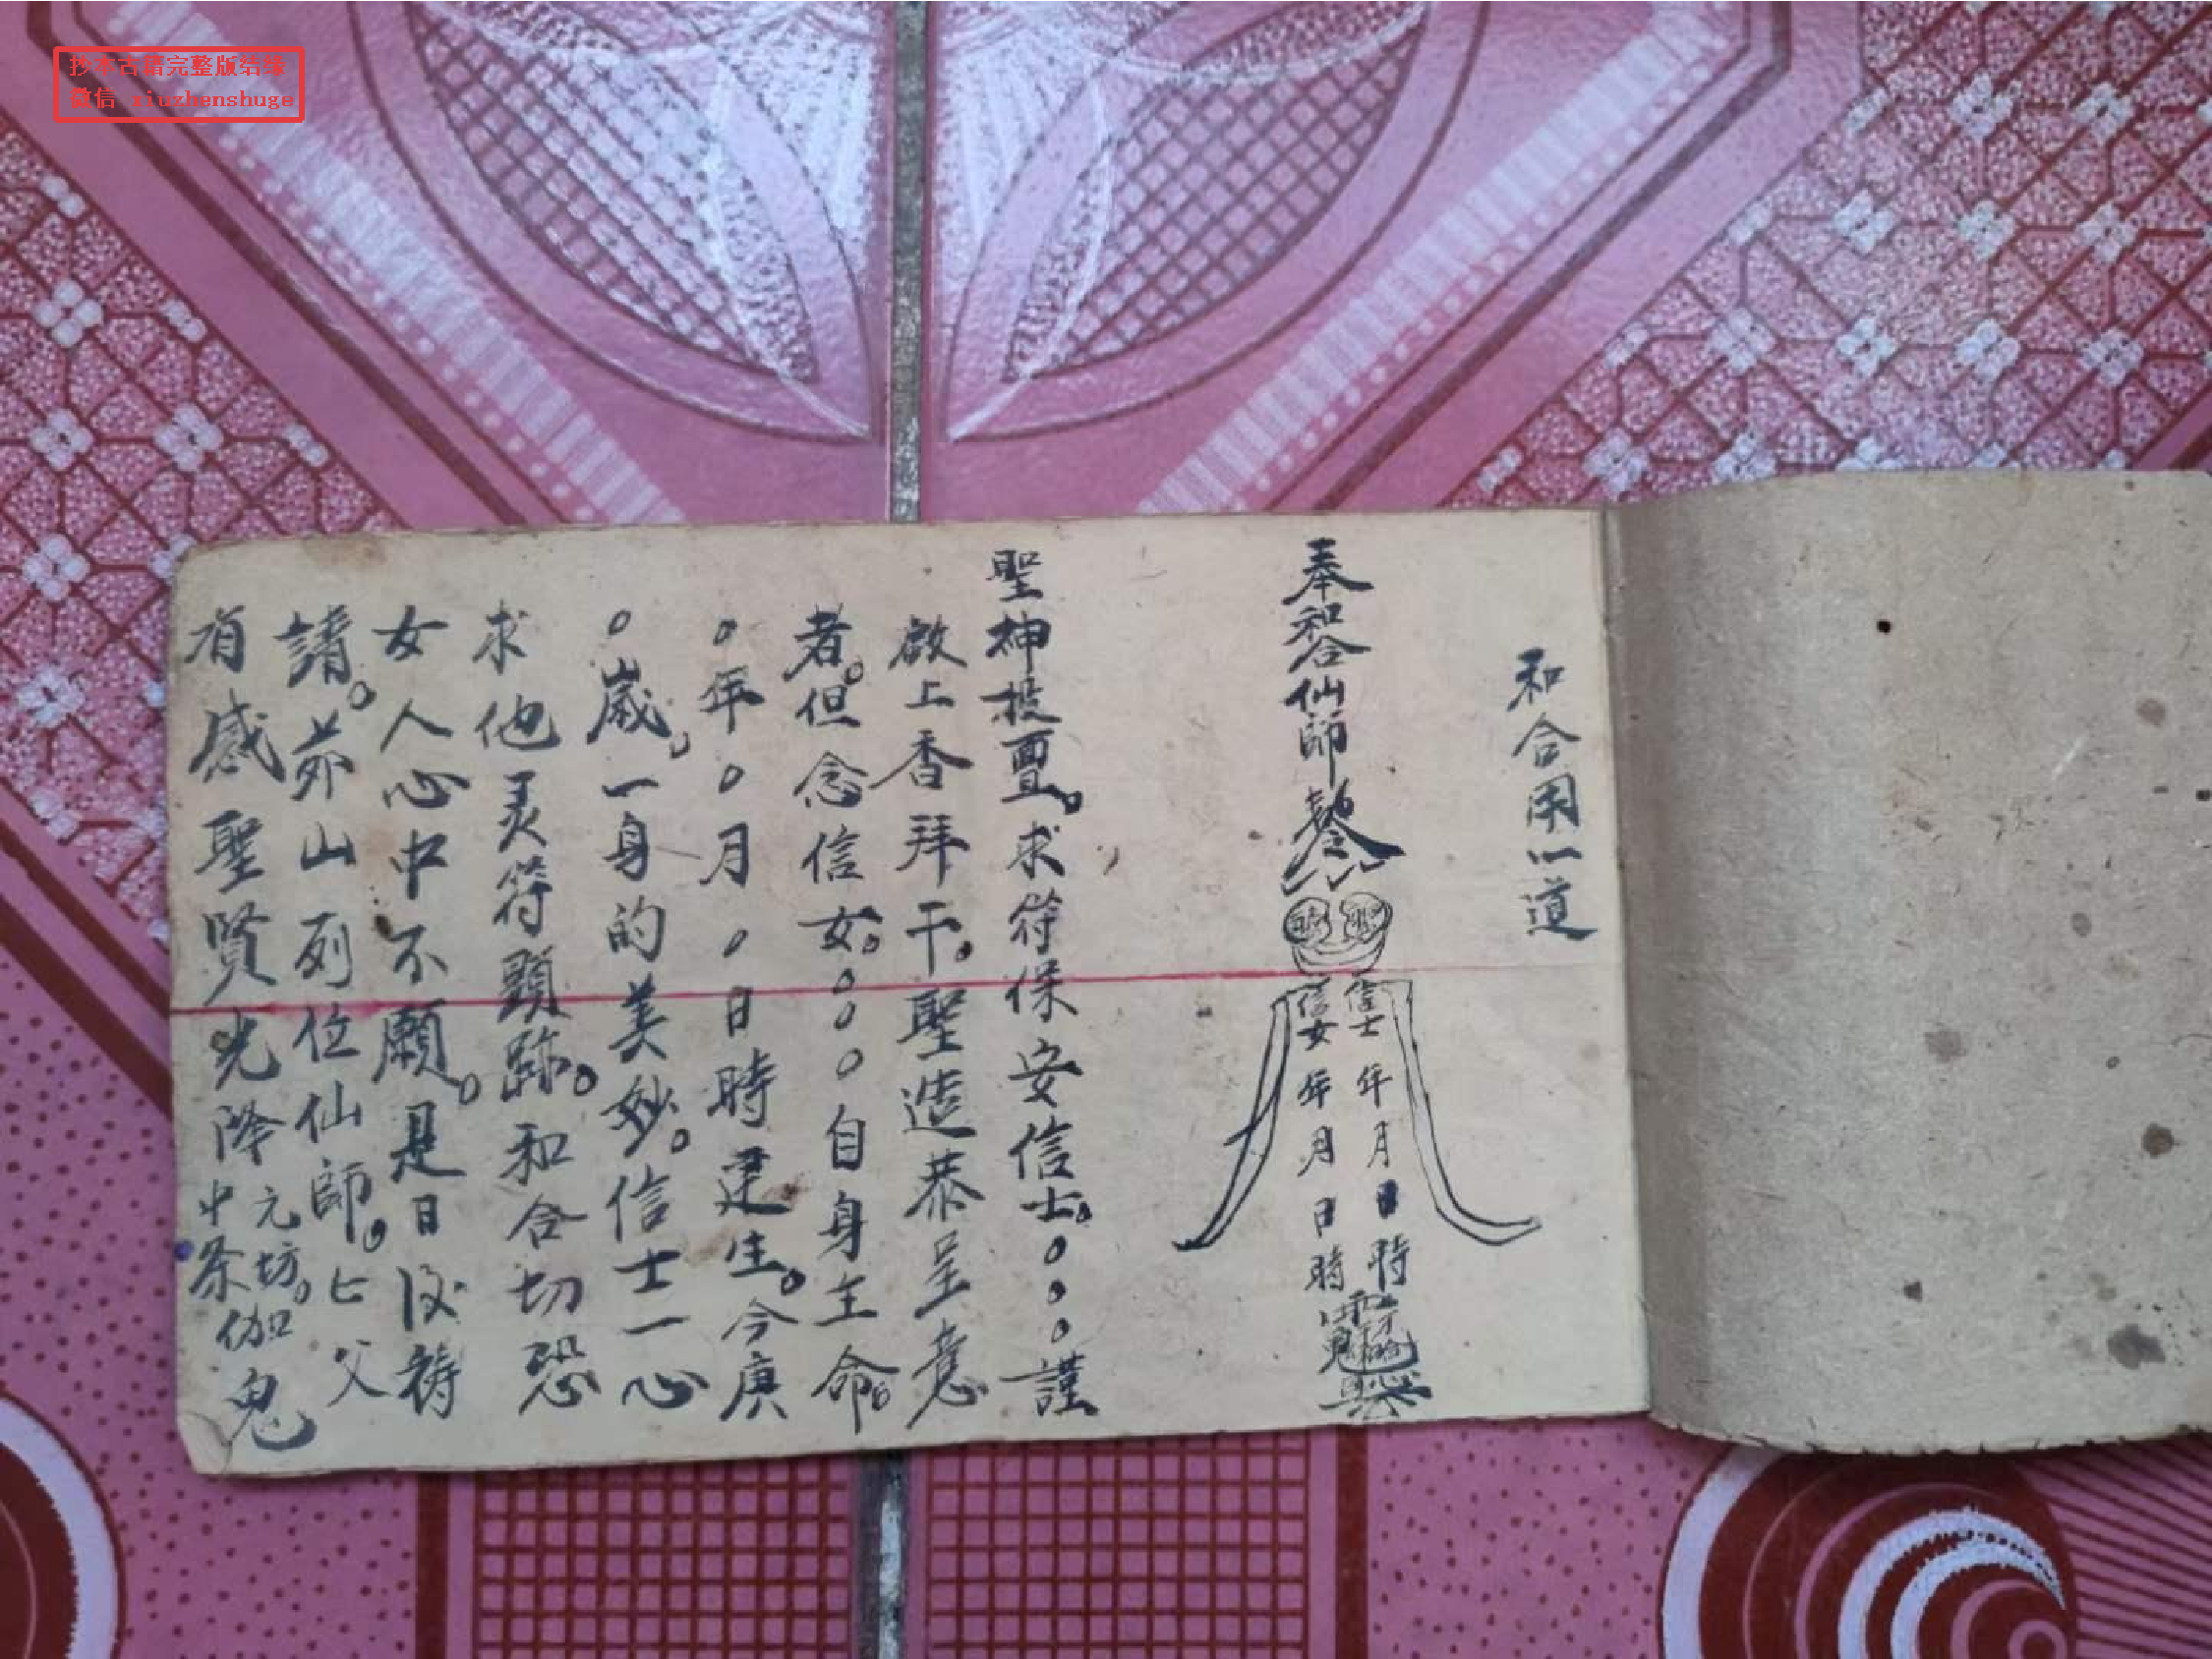 抄本古籍完整版结缘
微信 xiuzhenshuge
和合用一道
奉和合仙師
信士 年月日時
信女 年月日時
聖神投 求符保安信士。〇〇〇謹
啟上香拜干。聖造恭呈意
者。但念信女。〇〇〇自身主命
〇年〇月〇日時建生。今庚
〇歲。一身的美妙。信士一心
求他灵符顕跡。和合切恐
女人心中不願。是日 祷
請。茆山列位仙師。 父
有感聖賢光降
元坊。
中茶伽鬼